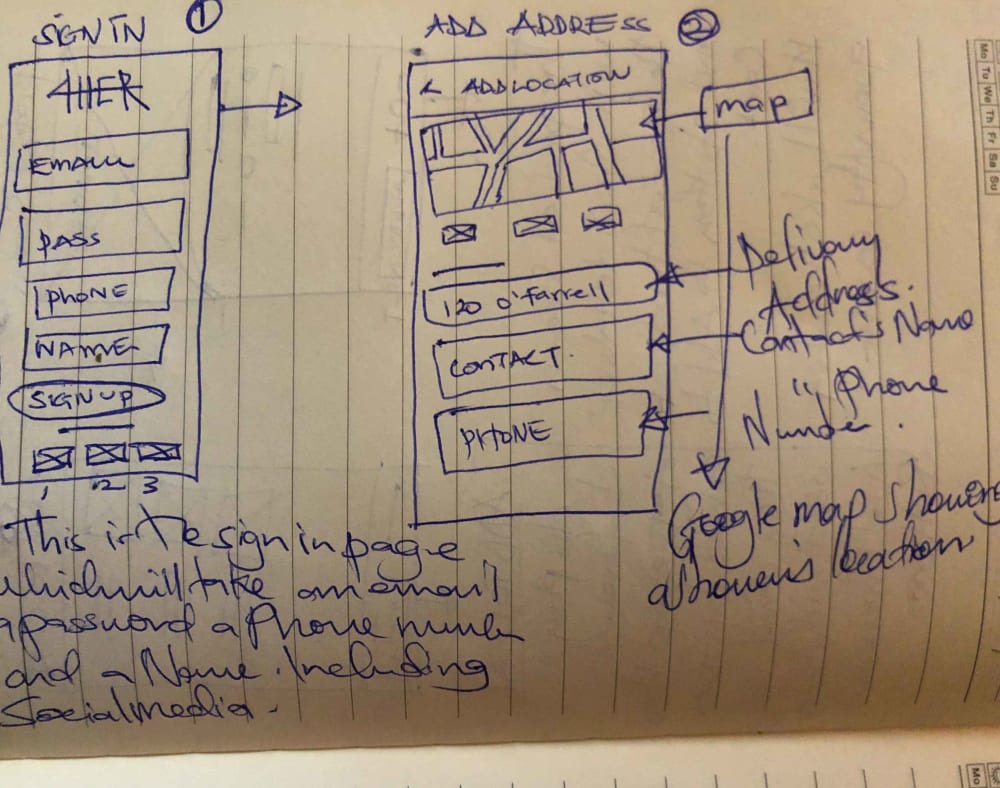 SIGN IN 1
4HER
EMAIL
PASS
PHONE
NAME
SIGN UP
1 2 3
This is the sign in page
which will take an email
a password a Phone number
and a Name. Including
Social media.
ADD ADDRESS 2
< ADD LOCATION
map
120 O'Farrell
CONTACT.
PHONE
Delivery
Address.
Contact's Name
" Phone
Number.
Google map showing
location
Mo Tu We Th Fr Sa Su
Mo